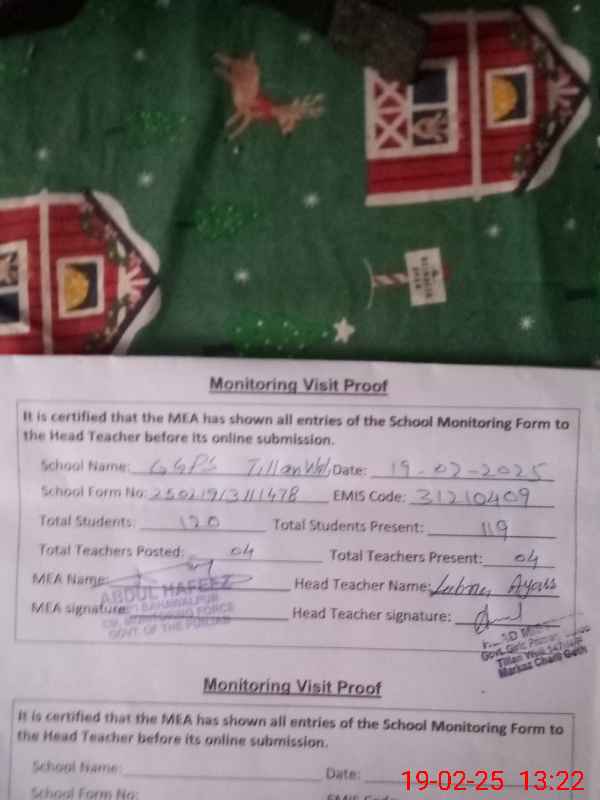 Monitoring Visit Proof
It is certified that the MEA has shown all entries of the School Monitoring Form to
the Head Teacher before its online submission.
School Name: GGPS Tillan Wali Date: 19-02-2025
School Form No: 250219/3111478 EMIS Code: 31210409
Total Students: 120 Total Students Present: 119
Total Teachers Posted: 04 Total Teachers Present: 04
MEA Name: Head Teacher Name: Lubna Ayais
ABDUL HAFEEZ
BAHAWALPUR
MEA signature: Head Teacher signature:
CM, MONITORING FORCE
GOVT. OF THE PUNJAB
Govt. Girls Primary
Tillan Wali
Markaz
Monitoring Visit Proof
It is certified that the MEA has shown all entries of the School Monitoring Form to
the Head Teacher before its online submission.
School Name: Date:
School Form No: EMIS Code:
19-02-25 13:22